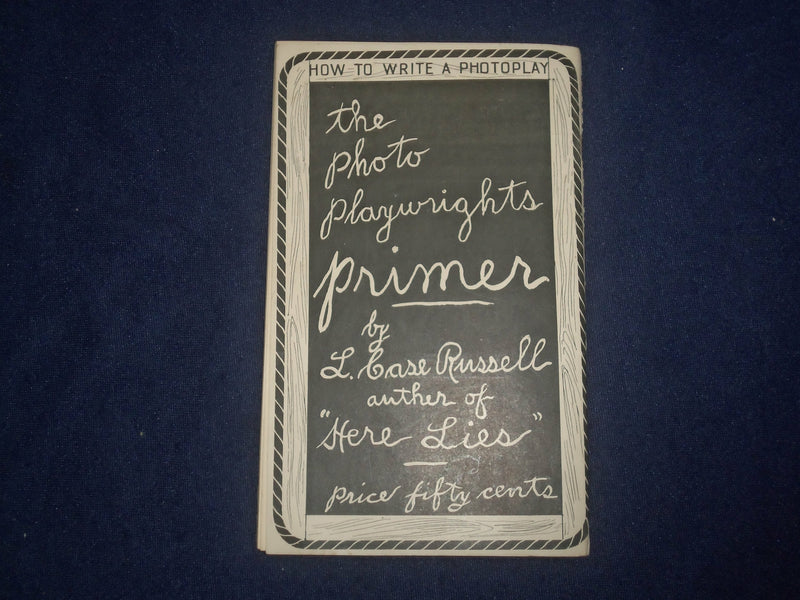 HOW TO WRITE A PHOTOPLAY
the
photo
playwrights
primer
by
L. Case Russell
author of
"Here Lies"
price fifty cents